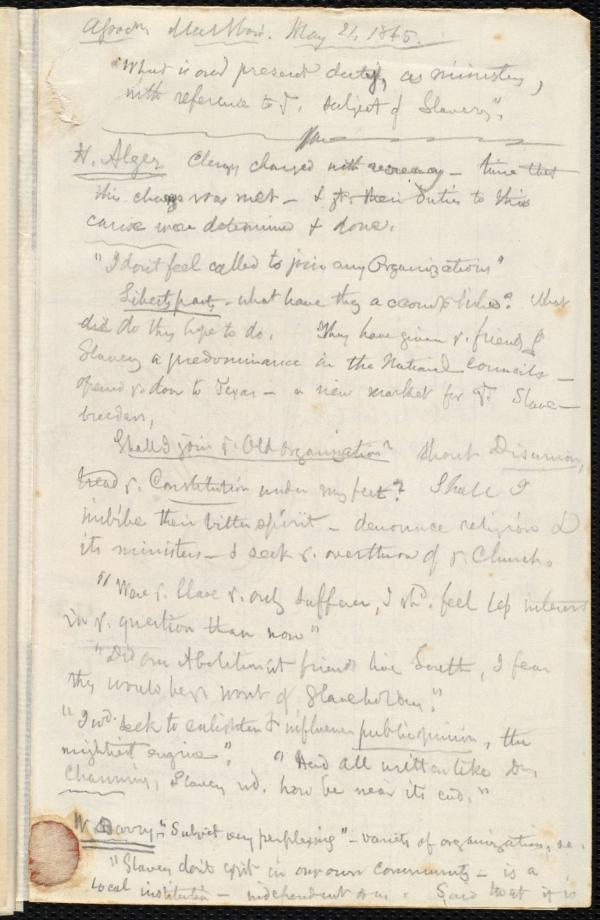 May 21, 1845.
"What is our present duty, as ministers,
with reference to ye. subject of Slavery".
H. Alger Clergy charged with recreancy – time that
this charge was met – & yt. their duties to this
cause were determined & done.
"I don't feel called to join any Organizations"
Liberty party – what have they accomplished? What
did do they hope to do. They have given ye. friends of
Slavery a predominance in the National Councils –
opened ye. door to Texas – a new market for ye. Slave-
breeders,
Shall I join ye. Old Organization? Shout Disunion,
tread ye. Constitution under my feet? Shall I
imbibe their bitter spirit – denounce religion &
its ministers – & seek ye. overthrow of ye. Church.
"Were ye. Slave ye. only sufferer, I shd. feel less interest
in ye. question than now"
"Did our Abolitionist friends live South, I fear
they would be ye. worst of Slaveholders."
"I wd. seek to enlighten & influence public opinion, the
mightiest engine". "Had all written like Dr.
Channing, Slavery wd. now be near its end."
"Subject very perplexing" – variety of organizations, &c.
"Slavery don't exist in our own community – is a
local institution – independent of us. Said that it is